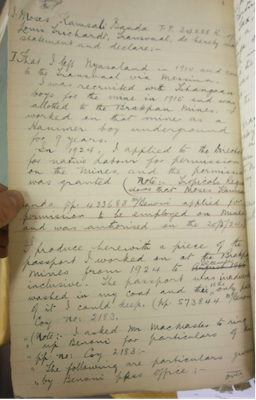 I, Moses Ramsali Banda P.P. 242888 of
Louis Trichardt, Transvaal, do hereby make
statement and declare:-
That I left Nyasaland in 1914 and
to the Transvaal via Messina
I was recruited with Shangaan
boys for the mine in 1915 and was
allotted to the Brakpan Mines. I
worked on that mine as a
Hammer boy underground
for 9 years.
In 1924, I applied to the Director
for native Labour for permission
on the Mines, and the permission
was granted (Note:- Inspection
shows that Moses
Banda pp. 423688 Benoni applied for
permission to be employed on Mines
and was authorised on the
I produce herewith a piece of the
passport I worked on at the Brakpan
mines from 1924 to
inclusive. The passport was
washed in my coat and the only
of it I could keep. (pp. 573844
Coy no: 2183.
(Note:- I asked Mr to ring
up Benoni for particulars of
pp. no: Coy 2183:-
The following are particulars
by Benoni pass office:-
over